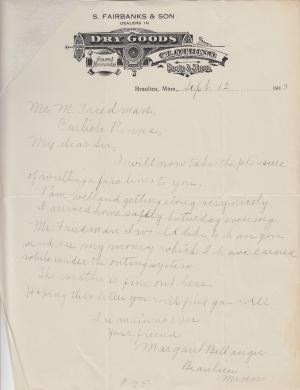 S. FAIRBANKS & SON
DEALERS IN
DRY GOODS
CLOTHING
Boots & Shoes
Beaulieu, Minn., Sept 12, 191
Mr. M. Friedman,
Carlisle Penna,
My dear Sir,
I will now take the pleasure
of writing a few lines to you.
I am well and getting along very nicely
I arrived home safely Saturday evening.
Mr. Friedman I would like to have you
send me my money which I have earned
while under the outing system.
The weather is fine out here.
Hoping this letter you will find you well
I remain as ever
Your friend
Margaret Bellanger
Beaulieu
Minn